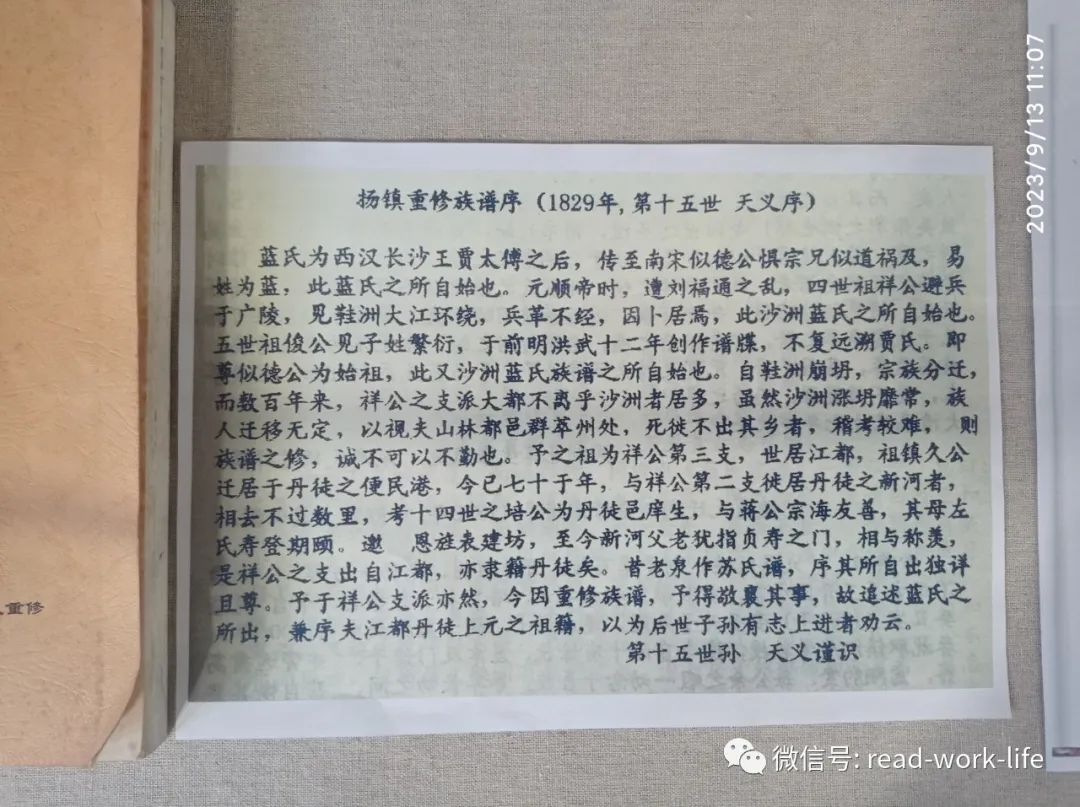 扬镇重修族谱序（1829年，第十五世 天义序）
蓝氏为西汉长沙王贾太傅之后，传至南宋似德公惧宗兄似道祸及，易
姓为蓝，此蓝氏之所自始也。元顺帝时，遭刘福通之乱，四世祖祥公避兵
于广陵，见鞋洲大江环绕，兵革不经，因卜居焉，此沙洲蓝氏之所自始也。
五世祖俊公见子姓繁衍，于前明洪武十二年创作谱牒，不复远溯贾氏。即
尊似德公为始祖，此又沙洲蓝氏族谱之所自始也。自鞋洲崩坍，宗族分迁，
而数百年来，祥公之支派大都不离乎沙洲者居多，虽然沙洲涨坍靡常，族
人迁移无定，以视夫山林都邑群萃州处，死徙不出其乡者，稽考较难，则
族谱之修，诚不可以不勤也。予之祖为祥公第三支，世居江都，祖镇久公
迁居于丹徒之便民港，今已七十于年，与祥公第二支徙居丹徒之新河者，
相去不过数里，考十四世之培公为丹徒邑庠生，与蒋公宗海友善，其母左
氏寿登期颐。邀 恩旌表建坊，至今新河父老犹指贞寿之门，相与称羡，
是祥公之支出自江都，亦隶籍丹徒矣。昔老泉作苏氏谱，序其所自出独详
且尊。予于祥公支派亦然，今因重修族谱，予得敬襄其事，故追述蓝氏之
所出，兼序夫江都丹徒上元之祖籍，以为后世子孙有志上进者劝云。
第十五世孙 天义谨识
重修
2023/9/13 11:07
微信号: read-work-life